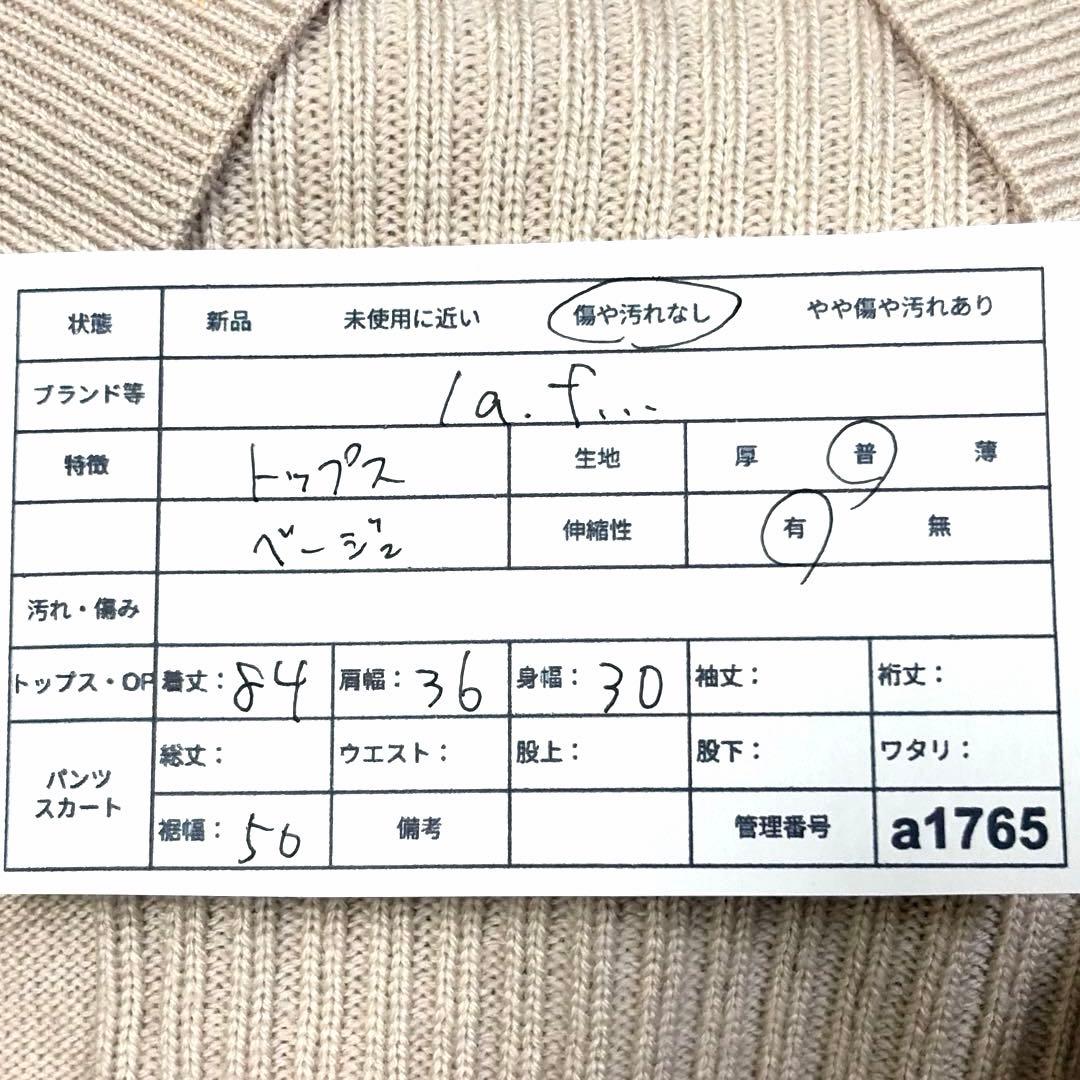 状態 新品 未使用に近い 傷や汚れなし やや傷や汚れあり
ブランド等 la.f...
特徴 トップス 生地 厚 普 薄
ベージュ 伸縮性 有 無
汚れ・傷み
トップス・OP 着丈：84 肩幅：36 身幅：30 袖丈： 裄丈：
パンツ 総丈： ウエスト： 股上： 股下： ワタリ：
スカート 裾幅：50 備考 管理番号 a1765